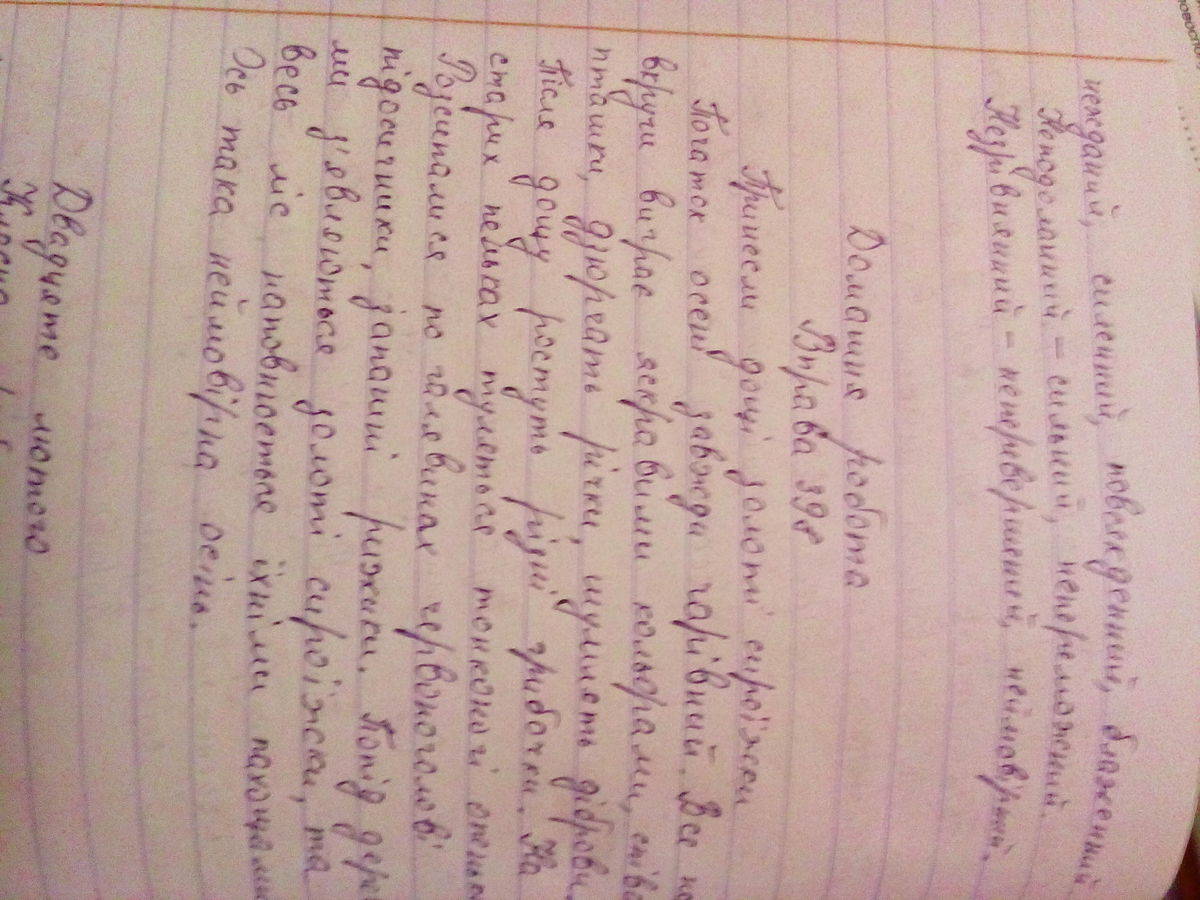 нежданий, силенний, повсякденний, блаженний
Неподоланний – сильний, непереможний.
Недрівнянний – неперевершений, неймовірний.
Домашня робота
Вправа 398
Принесли дощі золоті сироїжки
Початок осені завжди чарівний. Все на
вкруги виграє яскравими кольорами, співа
пташки, дзюрчать річки, шумлять діброви.
Після дощу ростуть різні грибочки. На
старих пеньках туляться тонконогі опеньк
Розсипалися по галявинах червоноголові
підосичники, запашні рижики. Попід дере
ми з'являються золоті сироїжки, та
весь ліс наповнюється їхніми пахощами
Ось така неймовірна осінь.
Двадцяте лютого